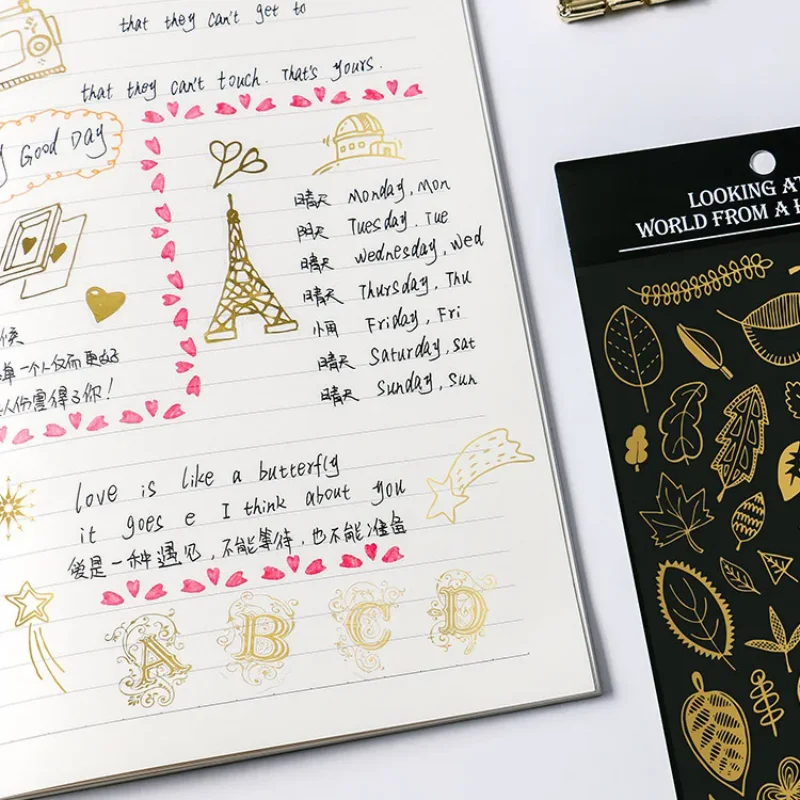 that they can't get to
that they can't touch. That's yours.
Good Day
晴天 Monday, Mon
阴天 Tuesday, Tue
晴天 Wednesday, Wed
晴天 Thursday, Thu
小雨 Friday, Fri
晴天 Saturday, Sat
晴天 Sunday, Sun
候
一个人仅而更好
人伤害得了你!
love is like a butterfly
it goes e I think about you
爱是一种遇见,不能等待,也不能准备
A B C D
LOOKING AT
WORLD FROM A